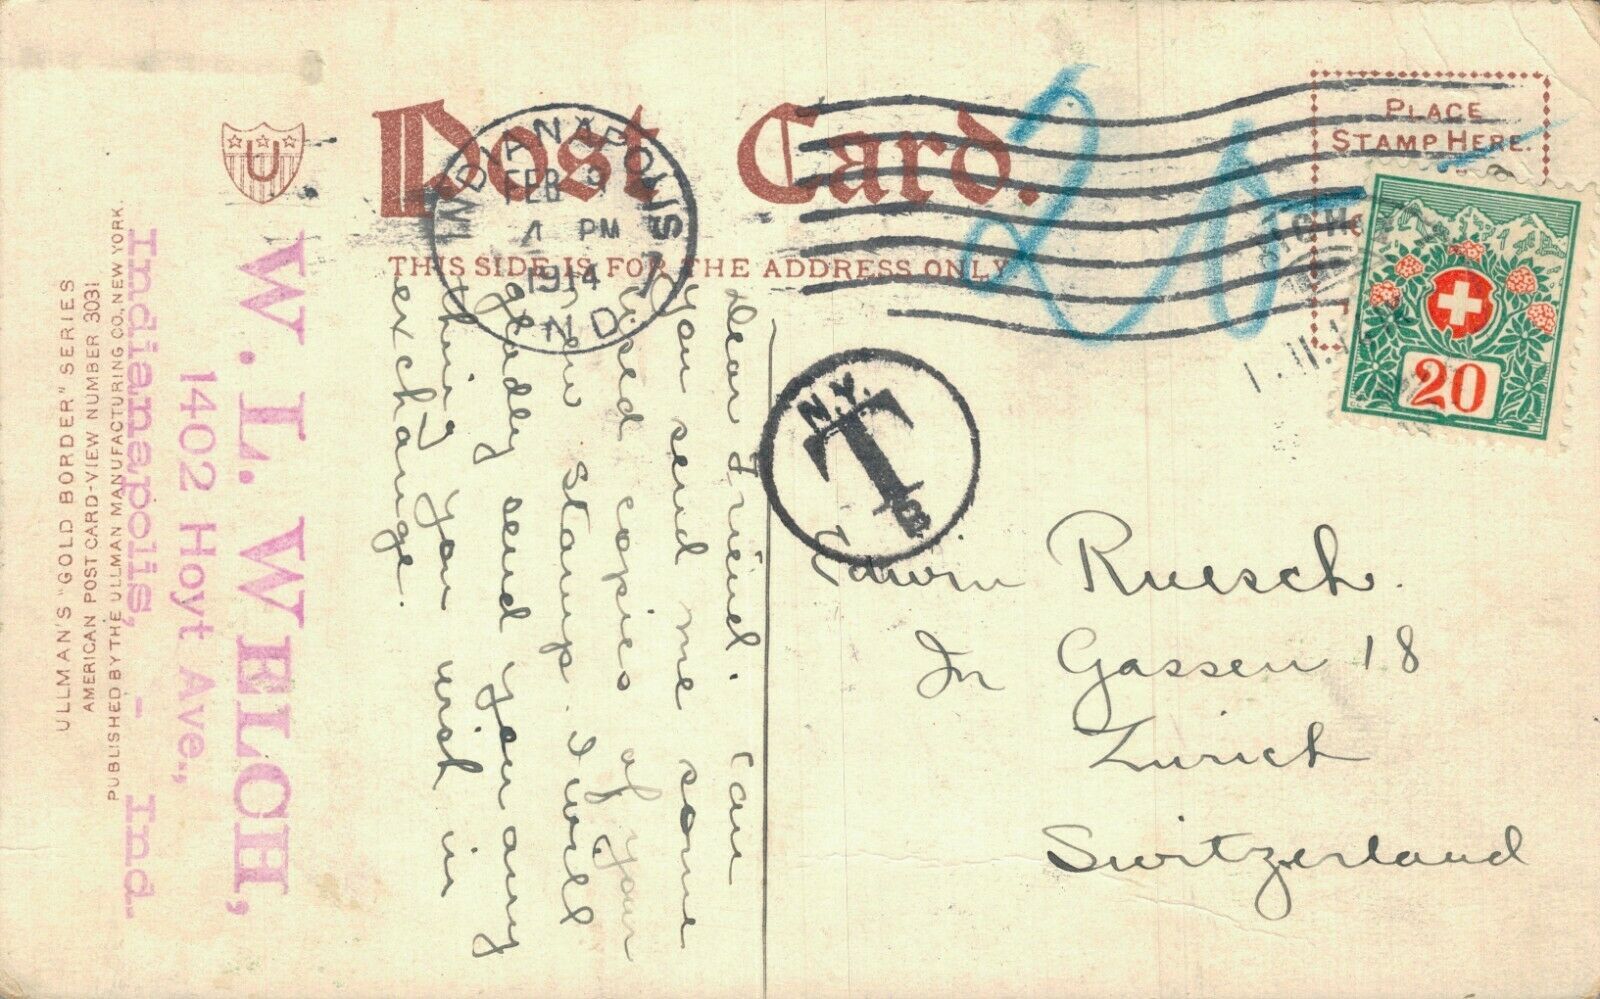 Post Card.
THIS SIDE IS FOR THE ADDRESS ONLY
PLACE
STAMP HERE.
INDIANAPOLIS
FEB 9
4 PM
1914
IND.
20
20
N.Y.
T
B
U
W. L. WELCH,
1402 Hoyt Ave.,
Indianapolis, - Ind.
ULLMAN'S "GOLD BORDER" SERIES
AMERICAN POST CARD-VIEW NUMBER 3031
PUBLISHED BY THE ULLMAN MANUFACTURING CO., NEW YORK.
Dear Friend. Can
you send me some
used copies of your
new stamp. I will
gladly send you any
thing you wish in
exchange.
Edwin Ruesch.
In Gassen 18
Zurich
Switzerland